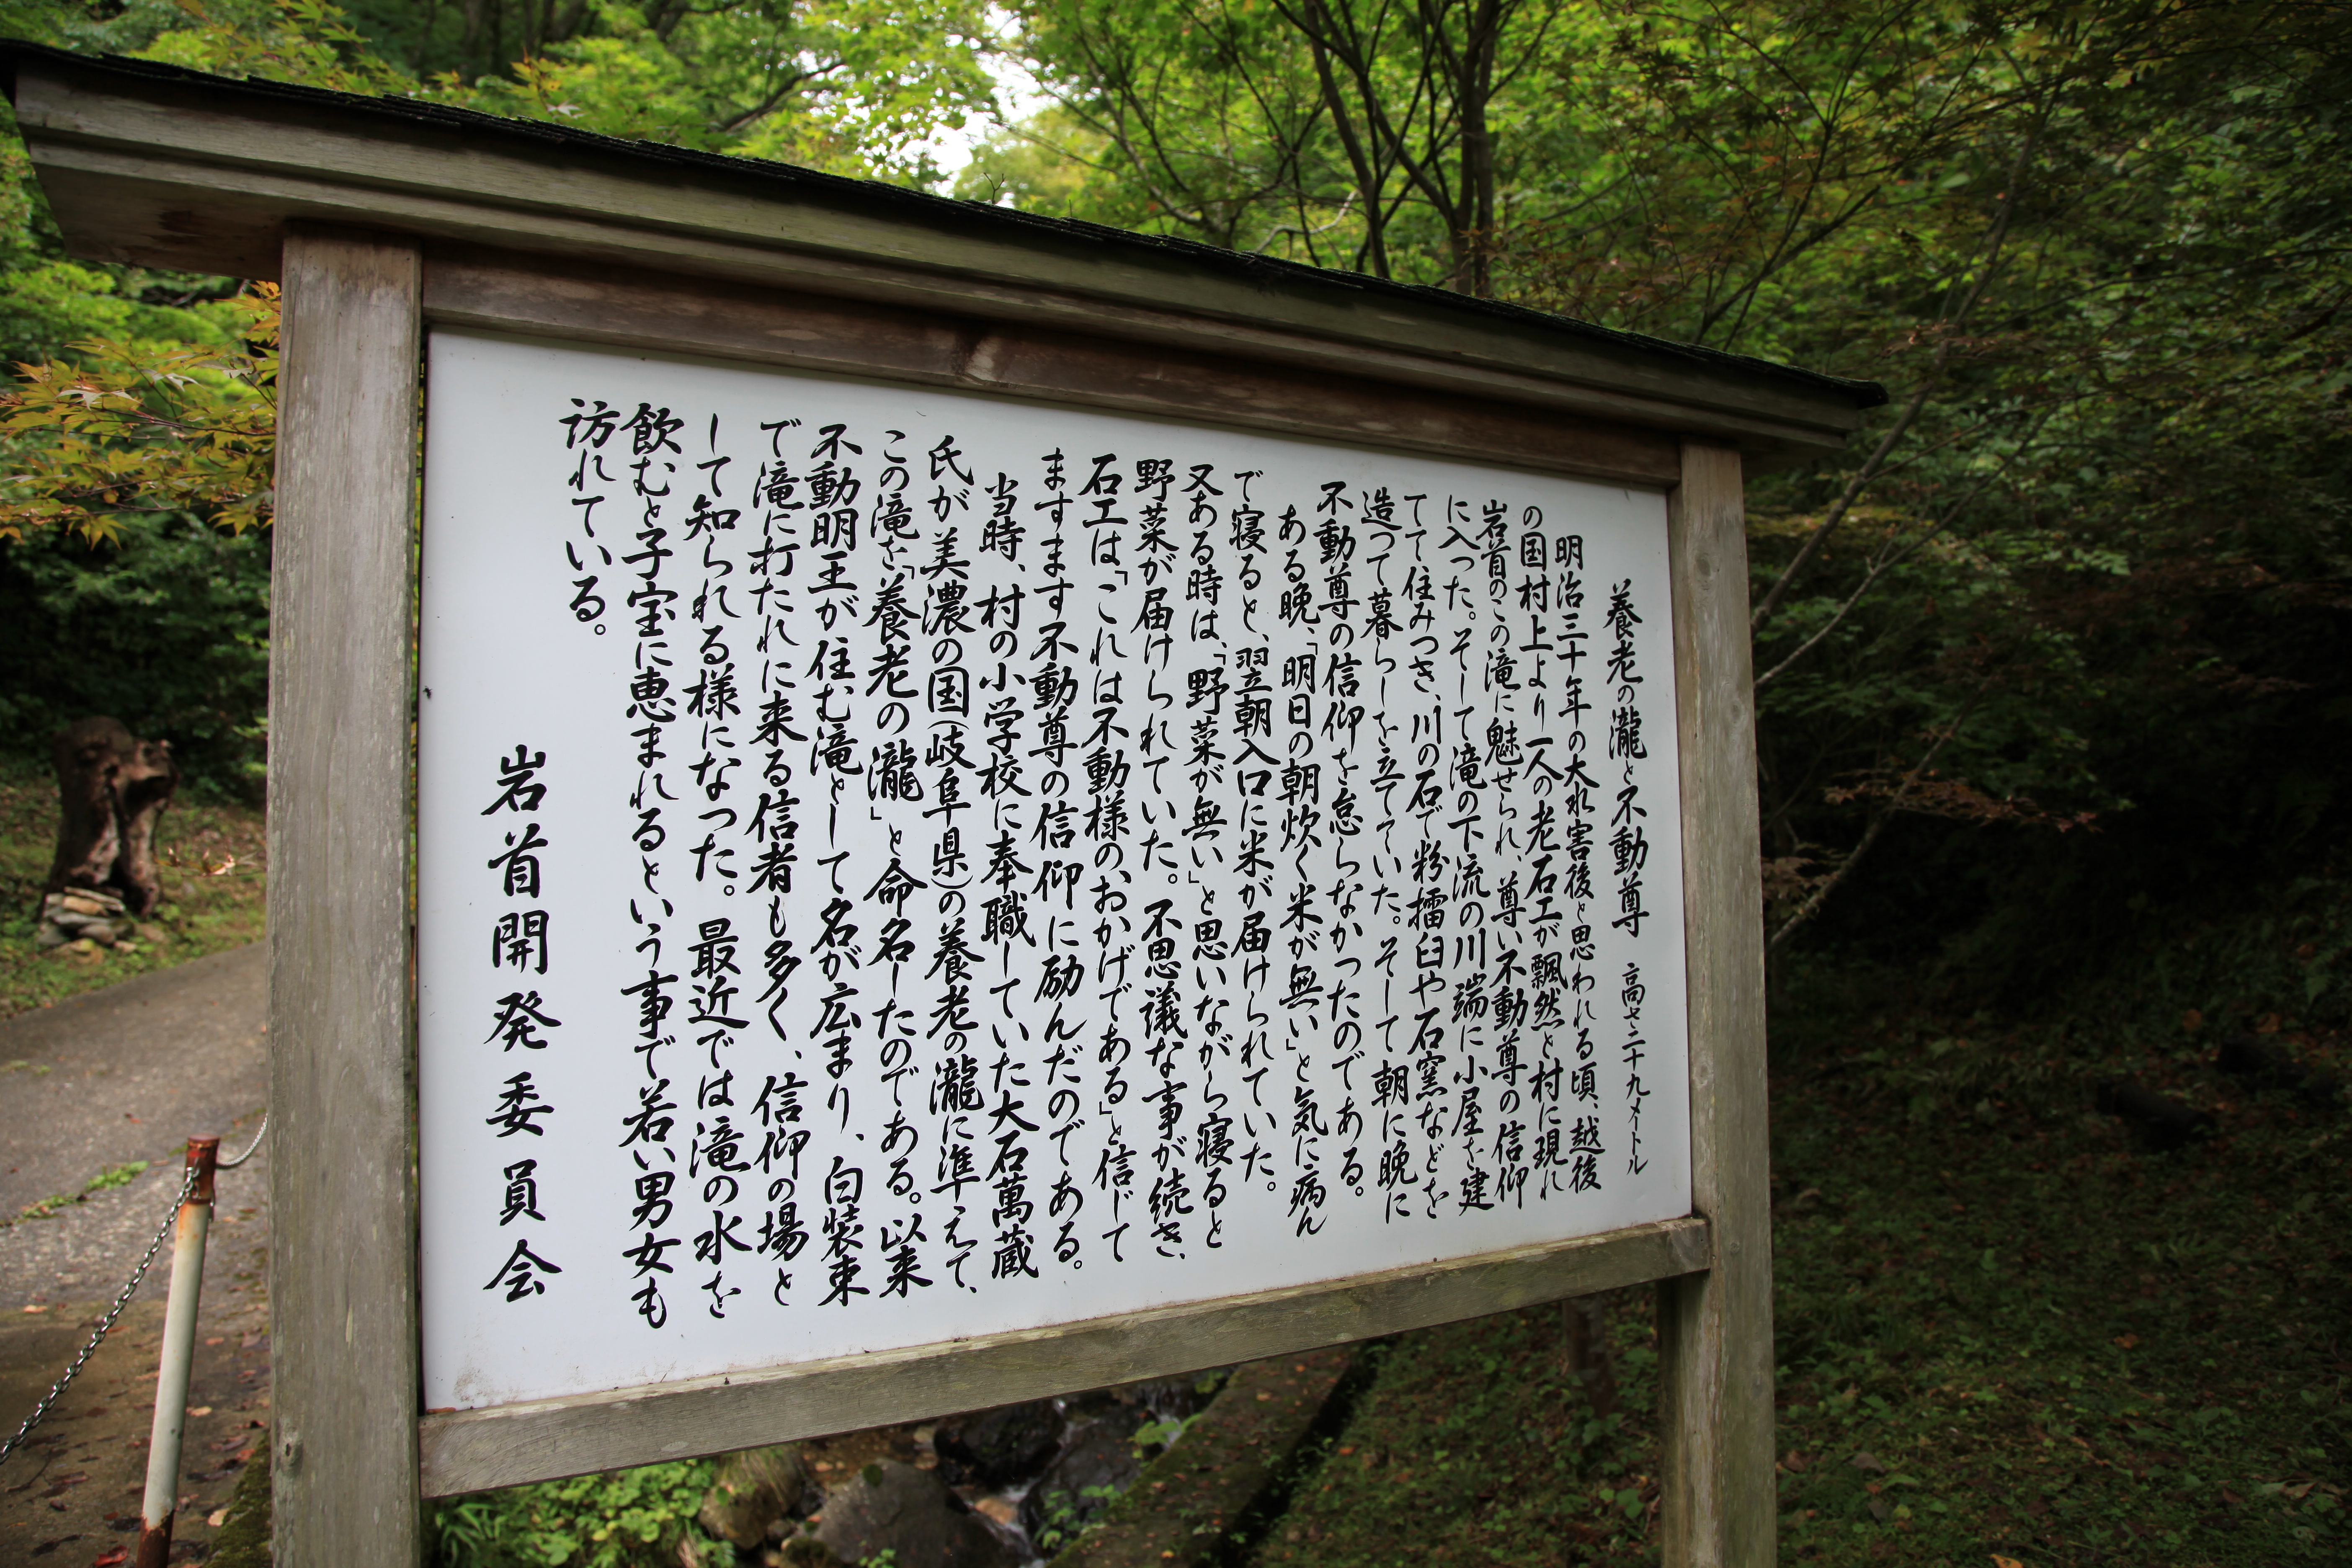 養老の瀧と不動尊　高さ二十九メートル
明治三十年の大水害後と思われる頃、越後
の国村上より一人の老石工が飄然と村に現れ
岩首のこの滝に魅せられ、尊い不動尊の信仰
に入った。そして滝の下流の川端に小屋を建
てて住みつき、川の石で粉擂臼や石窯などを
造って暮らしを立てていた。そして朝に晩に
不動尊の信仰を怠らなかったのである。
ある晩、「明日の朝炊く米が無い」と気に病ん
で寝ると、翌朝入口に米が届けられていた。
又ある時は、「野菜が無い」と思いながら寝ると
野菜が届けられていた。不思議な事が続き、
石工は「これは不動様の、おかげである」と信じて
ますます不動尊の信仰に励んだのである。
当時、村の小学校に奉職していた大石萬蔵
氏が美濃の国(岐阜県)の養老の瀧に準えて、
この滝を「養老の瀧」と命名したのである。以来
不動明王が住む滝として名が広まり、白装束
で滝に打たれに来る信者も多く、信仰の場と
して知られる様になった。最近では滝の水を
飲むと子宝に恵まれるという事で若い男女も
訪れている。
岩首開発委員会